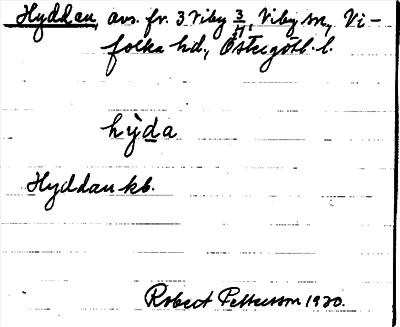 Hyddan, avs. fr. 3 Viby 3/4, Viby sn, Vi-
folka hd, Östergötl. l.
hỳda
Hyddan kb.
Robert Pettersson 1920.